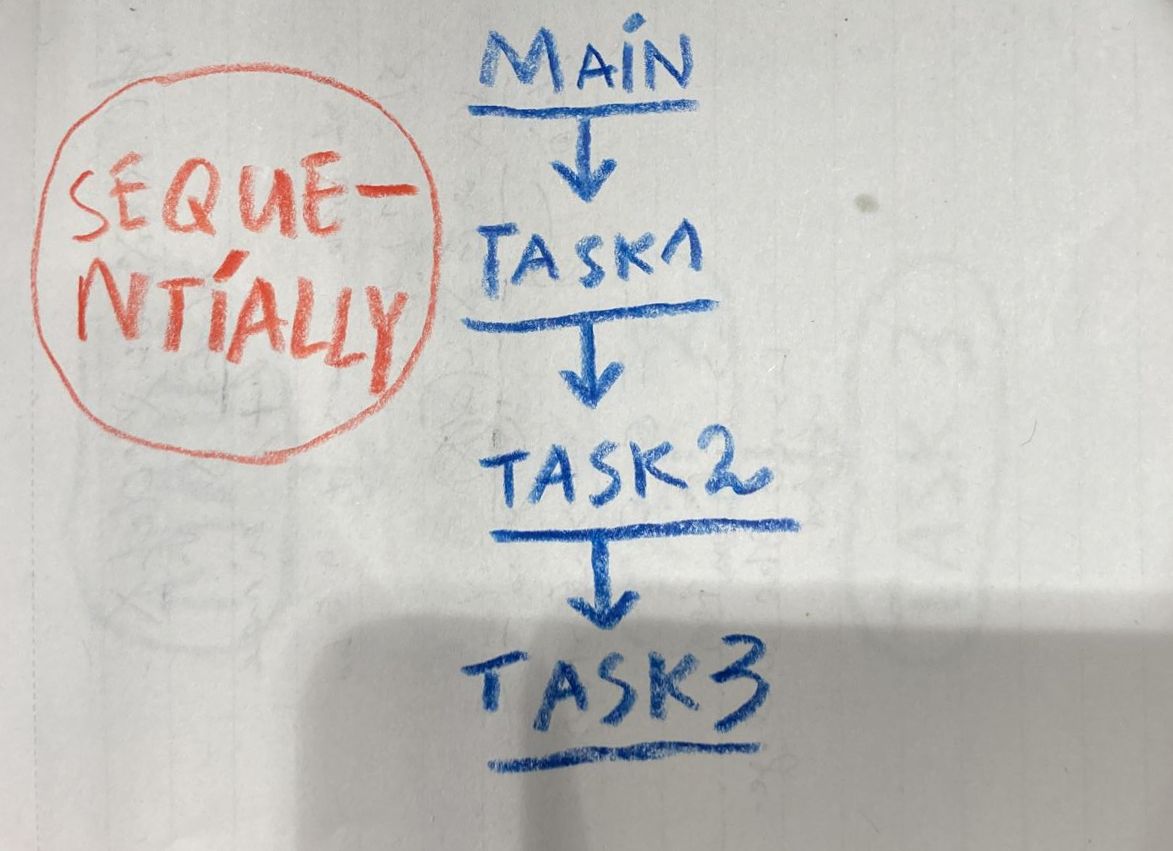 SEQUE-
NTÍALLY
MAÍN
TASK1
TASK2
TASK3